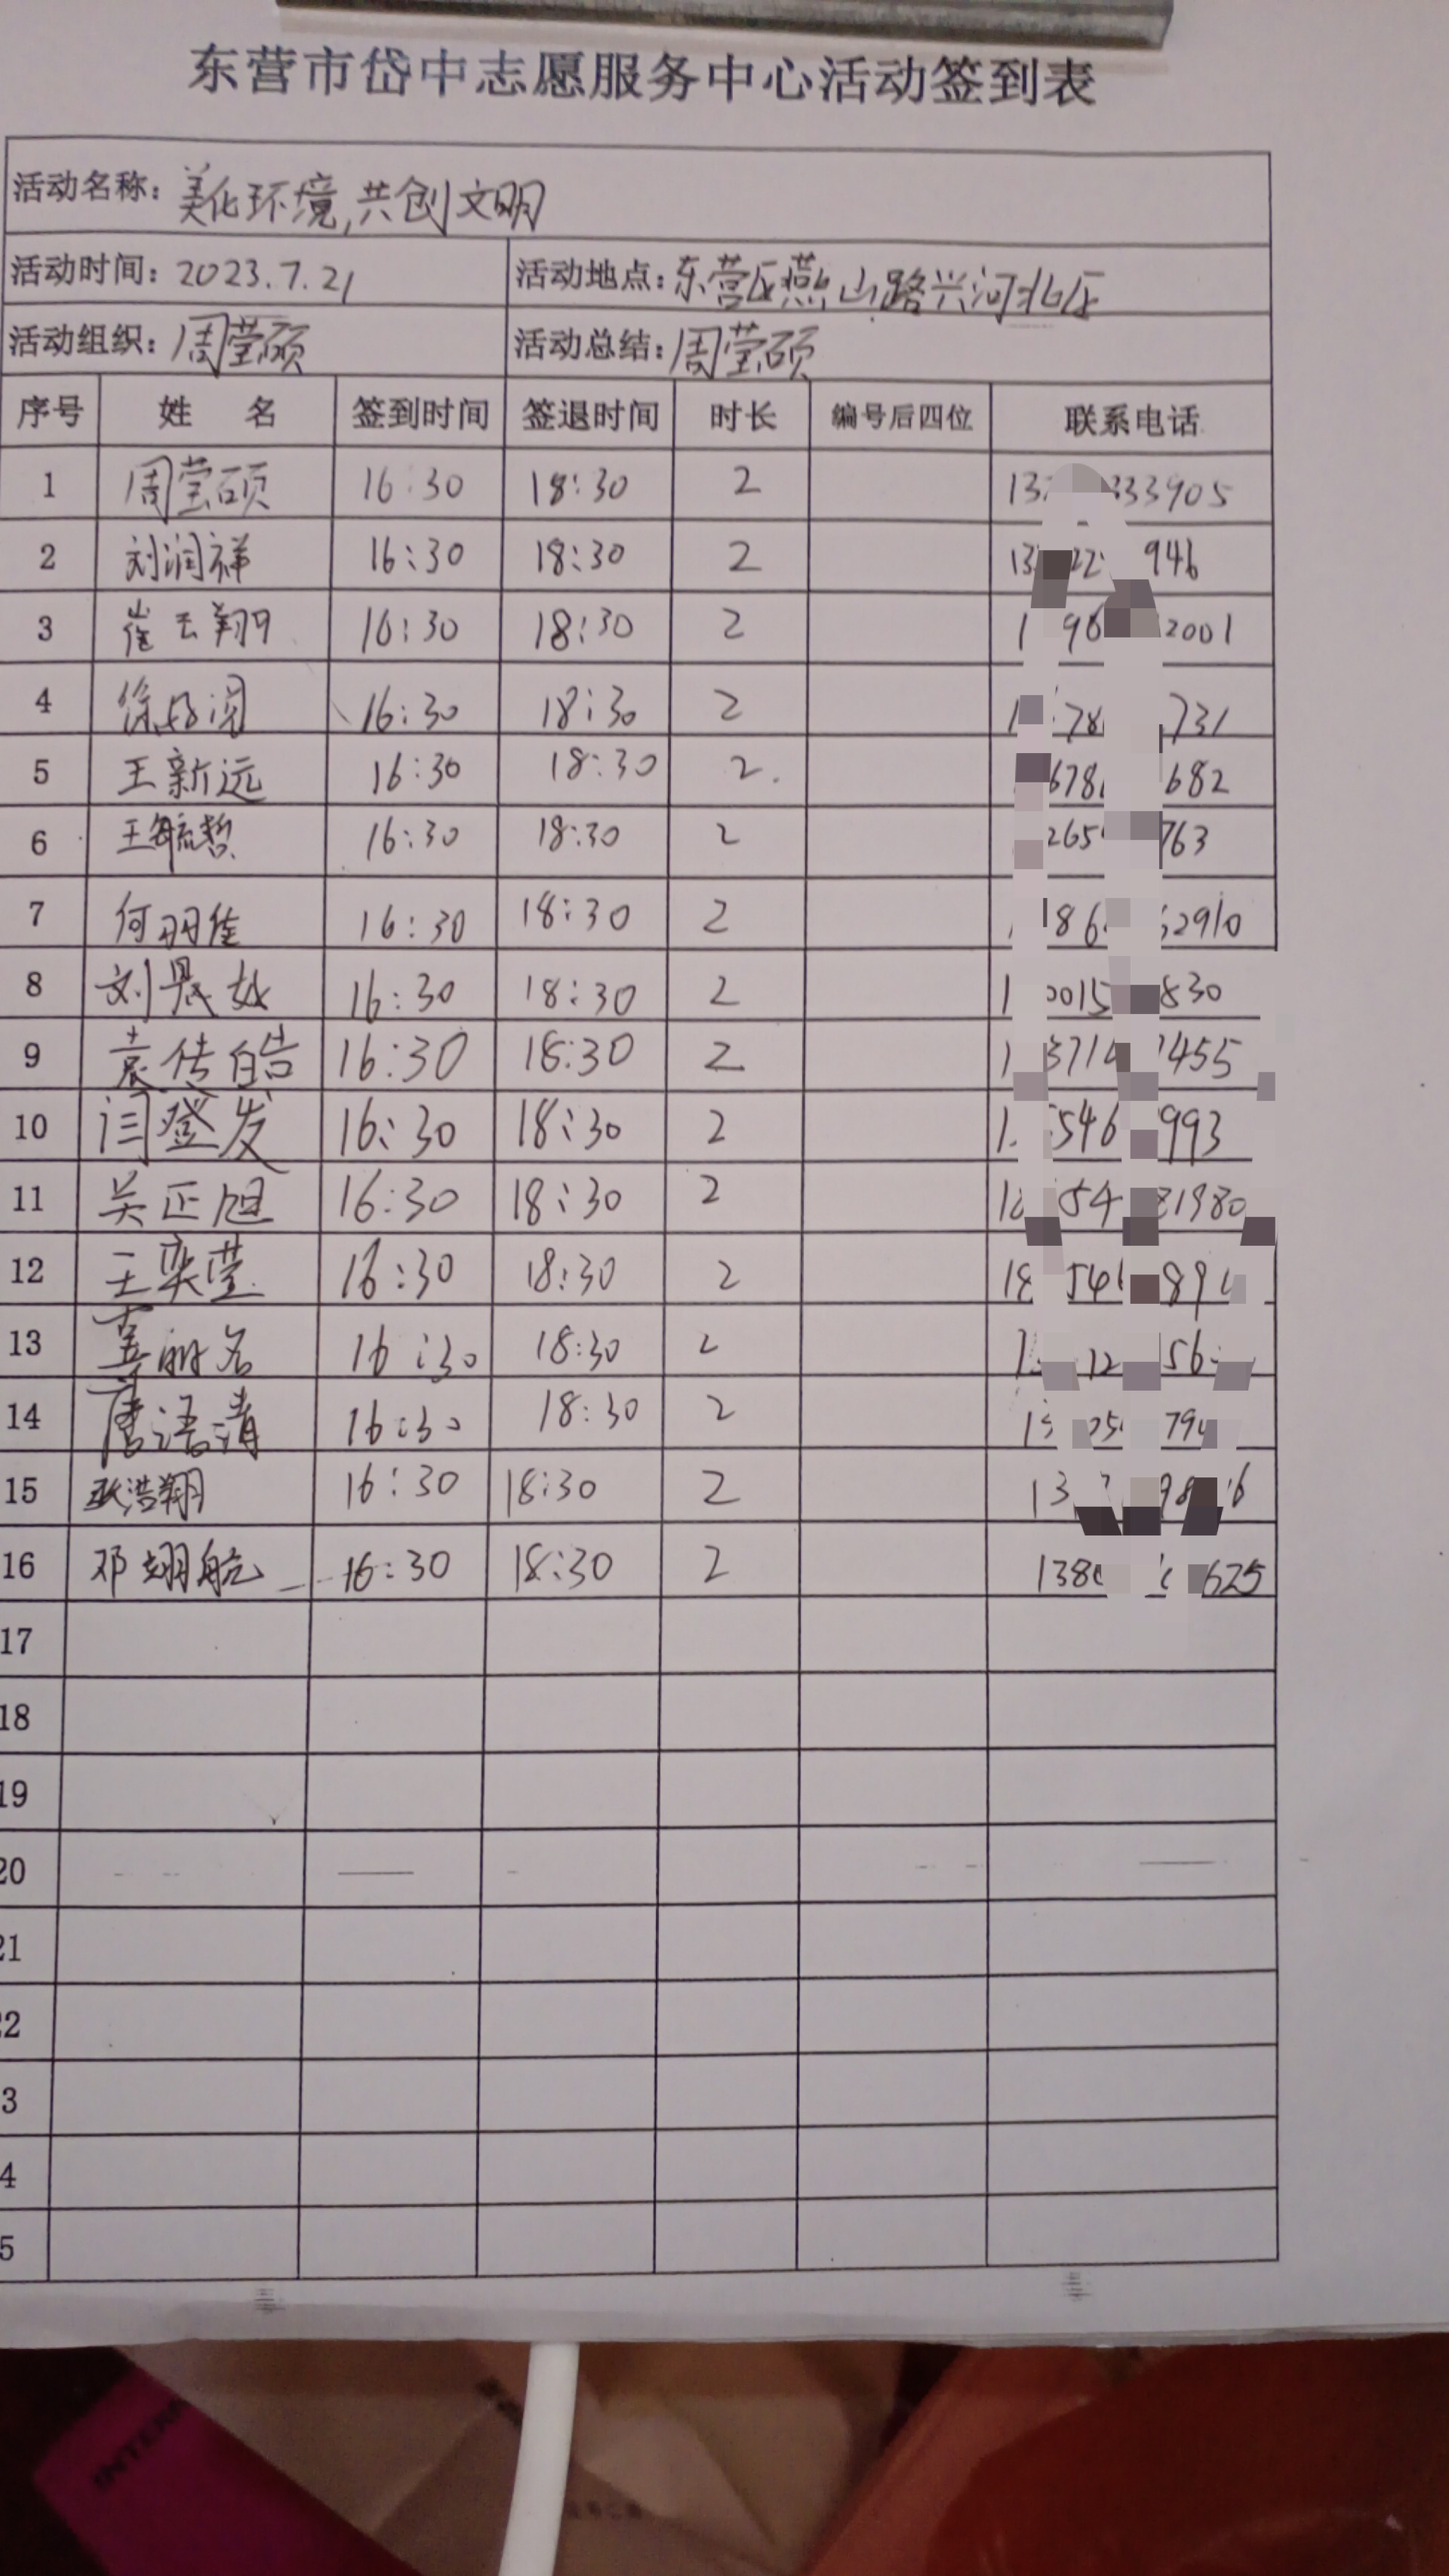 东营市岱中志愿服务中心活动签到表
活动名称: 美化环境,共创文明
活动时间: 2023.7.21 活动地点: 东营区燕山路兴河北区
活动组织: 周莹硕 活动总结: 周莹硕
序号 姓 名 签到时间 签退时间 时长 编号后四位 联系电话
1 周莹硕 16:30 18:30 2 333905
2 刘润祥 16:30 18:30 2 946
3 崔云翔 16:30 18:30 2 2001
4 徐 16:30 18:30 2 731
5 王新远 16:30 18:30 2. 682
6 王毓哲 16:30 18:30 2 763
7 何羽佳 16:30 18:30 2 2910
8 刘晟 16:30 18:30 2 830
9 袁传皓 16:30 18:30 2 455
10 闫登发 16:30 18:30 2 993
11 吴正旭 16:30 18:30 2 1980
12 王奕莹 16:30 18:30 2
13 16:30 18:30 2
14 唐语清 16:30 18:30 2
15 浩翔 16:30 18:30 2
16 邓翊航 16:30 18:30 2 625
17
18
19
20
21
22
3
4
5